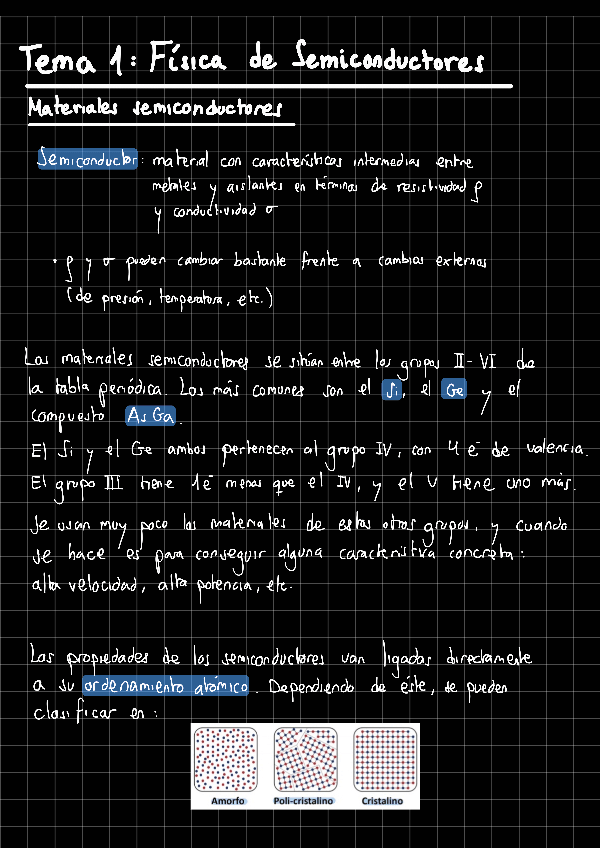 Tema 1: Física de Semiconductores
Materiales semiconductores
Semiconductor: material con características intermedias entre
metales y aislantes en términos de resistividad ρ
y conductividad σ
· ρ y σ pueden cambiar bastante frente a cambios externos
(de presión, temperatura, etc.)
Los materiales semiconductores se sitúan entre los grupos II-VI de
la tabla periódica. Los más comunes son el Si, el Ge y el
compuesto AsGa.
El Si y el Ge ambos pertenecen al grupo IV, con 4 e⁻ de valencia.
El grupo III tiene 1e⁻ menos que el IV, y el V tiene uno más.
Se usan muy poco los materiales de estos otros grupos, y cuando
se hace es para conseguir alguna característica concreta:
alta velocidad, alta potencia, etc.
Las propiedades de los semiconductores van ligadas directamente
a su ordenamiento atómico. Dependiendo de éste, se pueden
clasificar en:
Amorfo Poli-cristalino Cristalino